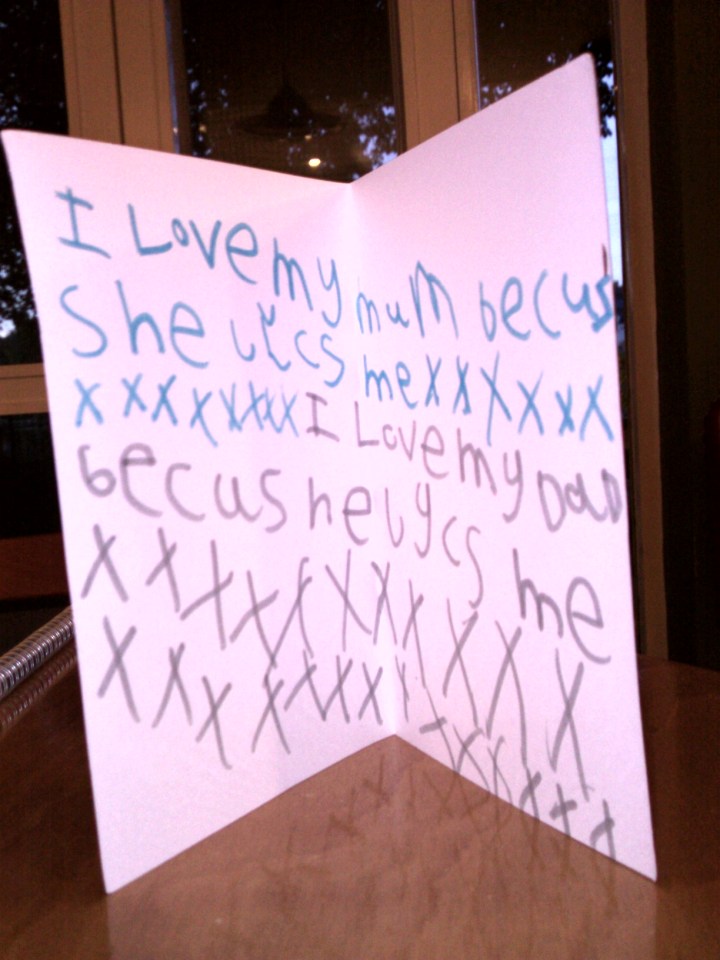 I Love my mum becus
She lycs me X X X X X X
X X X X X X X X I Love my DaD
becus he lycs me
X X X X X X X X X X X
X X X X X X X X X X X X X X